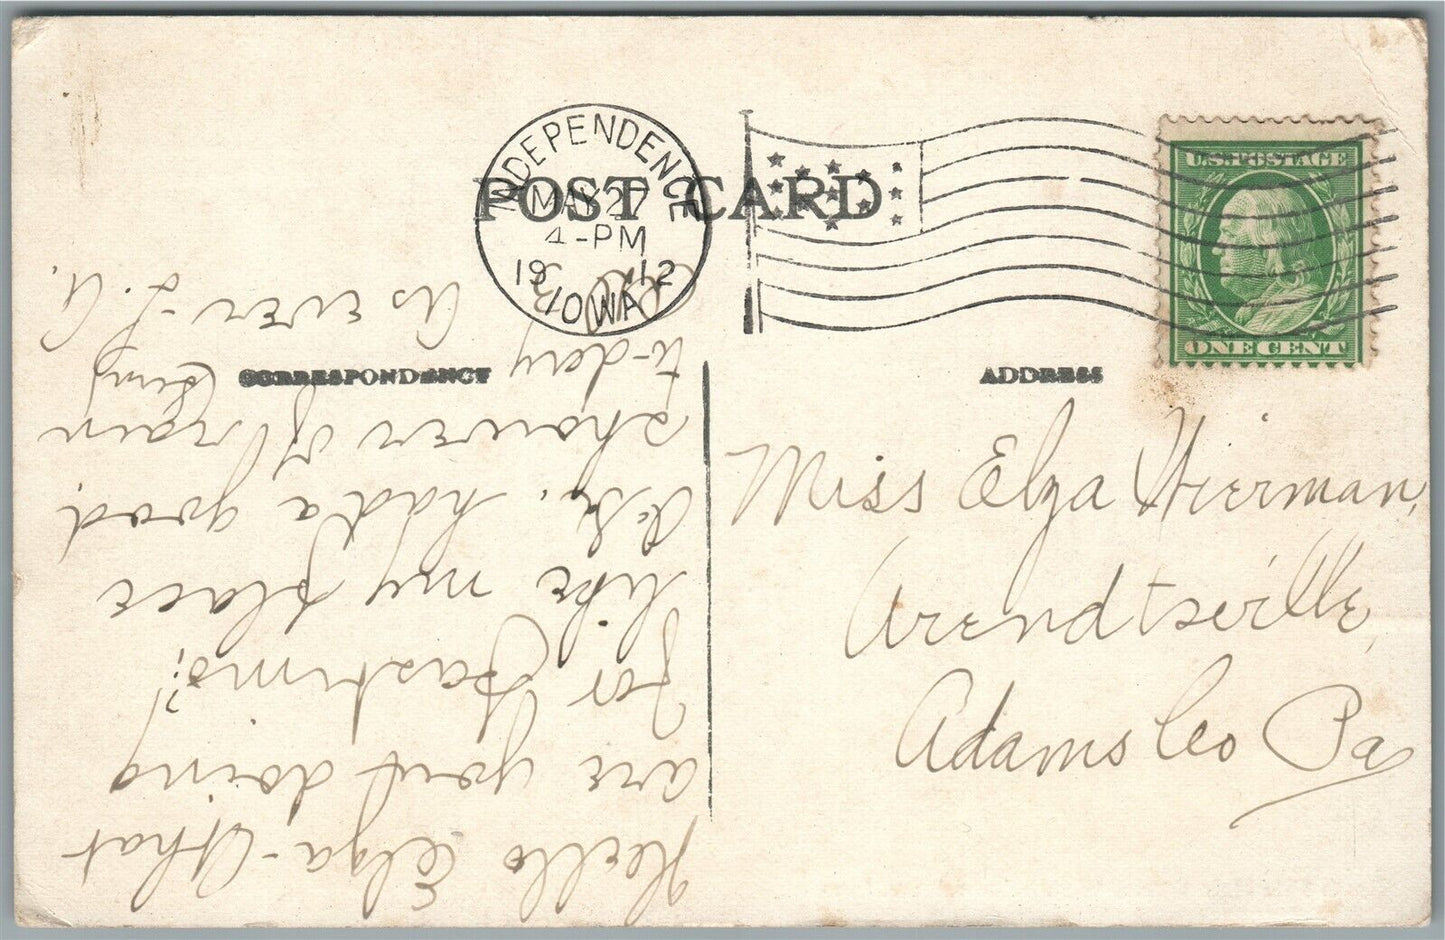 INDEPENDENCE
MAY 27
4-PM
1912
IOWA
POST CARD
U.S. POSTAGE
ONE CENT
CORRESPONDENCE
ADDRESS
Miss Elza Hierman,
Arendtsville,
Adams Co Pa
Hello Elza - What
are you doing
for pastime?
like my place
had a good
shower of rain
to-day
As ever - L. A.